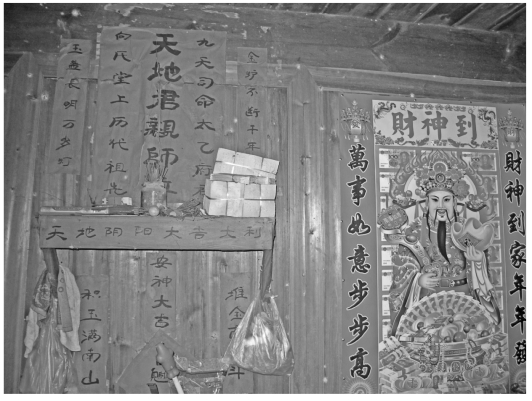 玉盏长明万岁灯
向氏堂上历代祖先
天地君親師
九天司命太乙府
金炉不断千年
天地阴阳大吉大利
积玉满南山
安神大吉
堆金
斗
財神到
萬事如意步步高
財神到家年年發